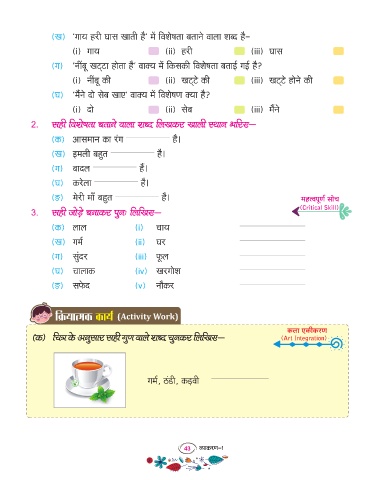 (ख) 'गाय हरी घास खाती है' में विशेषता बताने वाला शब्द है–
(i) गाय (ii) हरी (iii) घास
(ग) 'नींबू खट्टा होता है' वाक्य में किसकी विशेषता बताई गई है?
(i) नींबू की (ii) खट्टे की (iii) खट्टे होने की
(घ) 'मैंने दो सेब खाए' वाक्य में विशेषण क्या है?
(i) दो (ii) सेब (iii) मैंने
2. सही विशेषता बताने वाला शब्द लिखकर खाली स्थान भरिए–
(क) आसमान का रंग ________ है।
(ख) इमली बहुत ________ है।
(ग) बादल ________ हैं।
(घ) करेला ________ है।
(ङ) मेरी माँ बहुत ________ है।
महत्वपूर्ण सोच
(Critical Skill)
3. सही जोड़े बनाकर पुनः लिखिए–
(क) लाल (i) चाय ________
(ख) गर्म (ii) घर ________
(ग) सुंदर (iii) फूल ________
(घ) चालाक (iv) खरगोश ________
(ङ) सफेद (v) नौकर ________
क्रियात्मक कार्य (Activity Work)
कला एकीकरण
(Art Integration)
(क) चित्र के अनुसार सही गुण वाले शब्द चुनकर लिखिए–
गर्म, ठंडी, कड़वी ________
43 व्याकरण-1